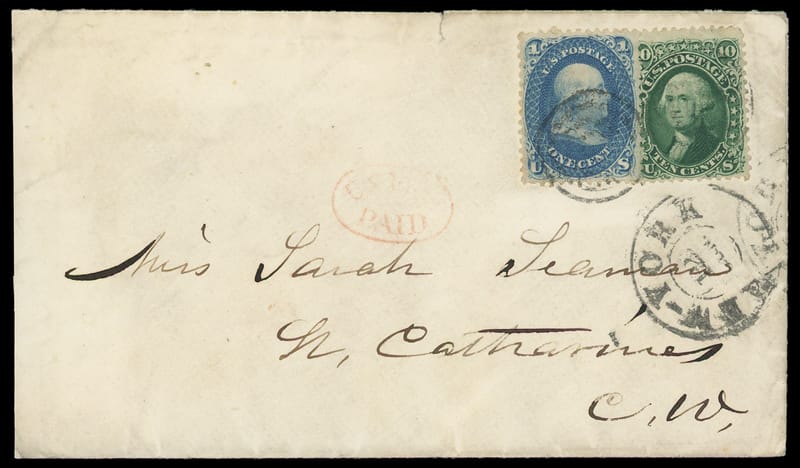 1 1
U.S. POSTAGE
ONE CENT
U S
10 10
U.S. POSTAGE
TEN CENTS
U S.
PAID
NEW-YORK
Miss Sarah Seaman
St, Catharines
C. W.